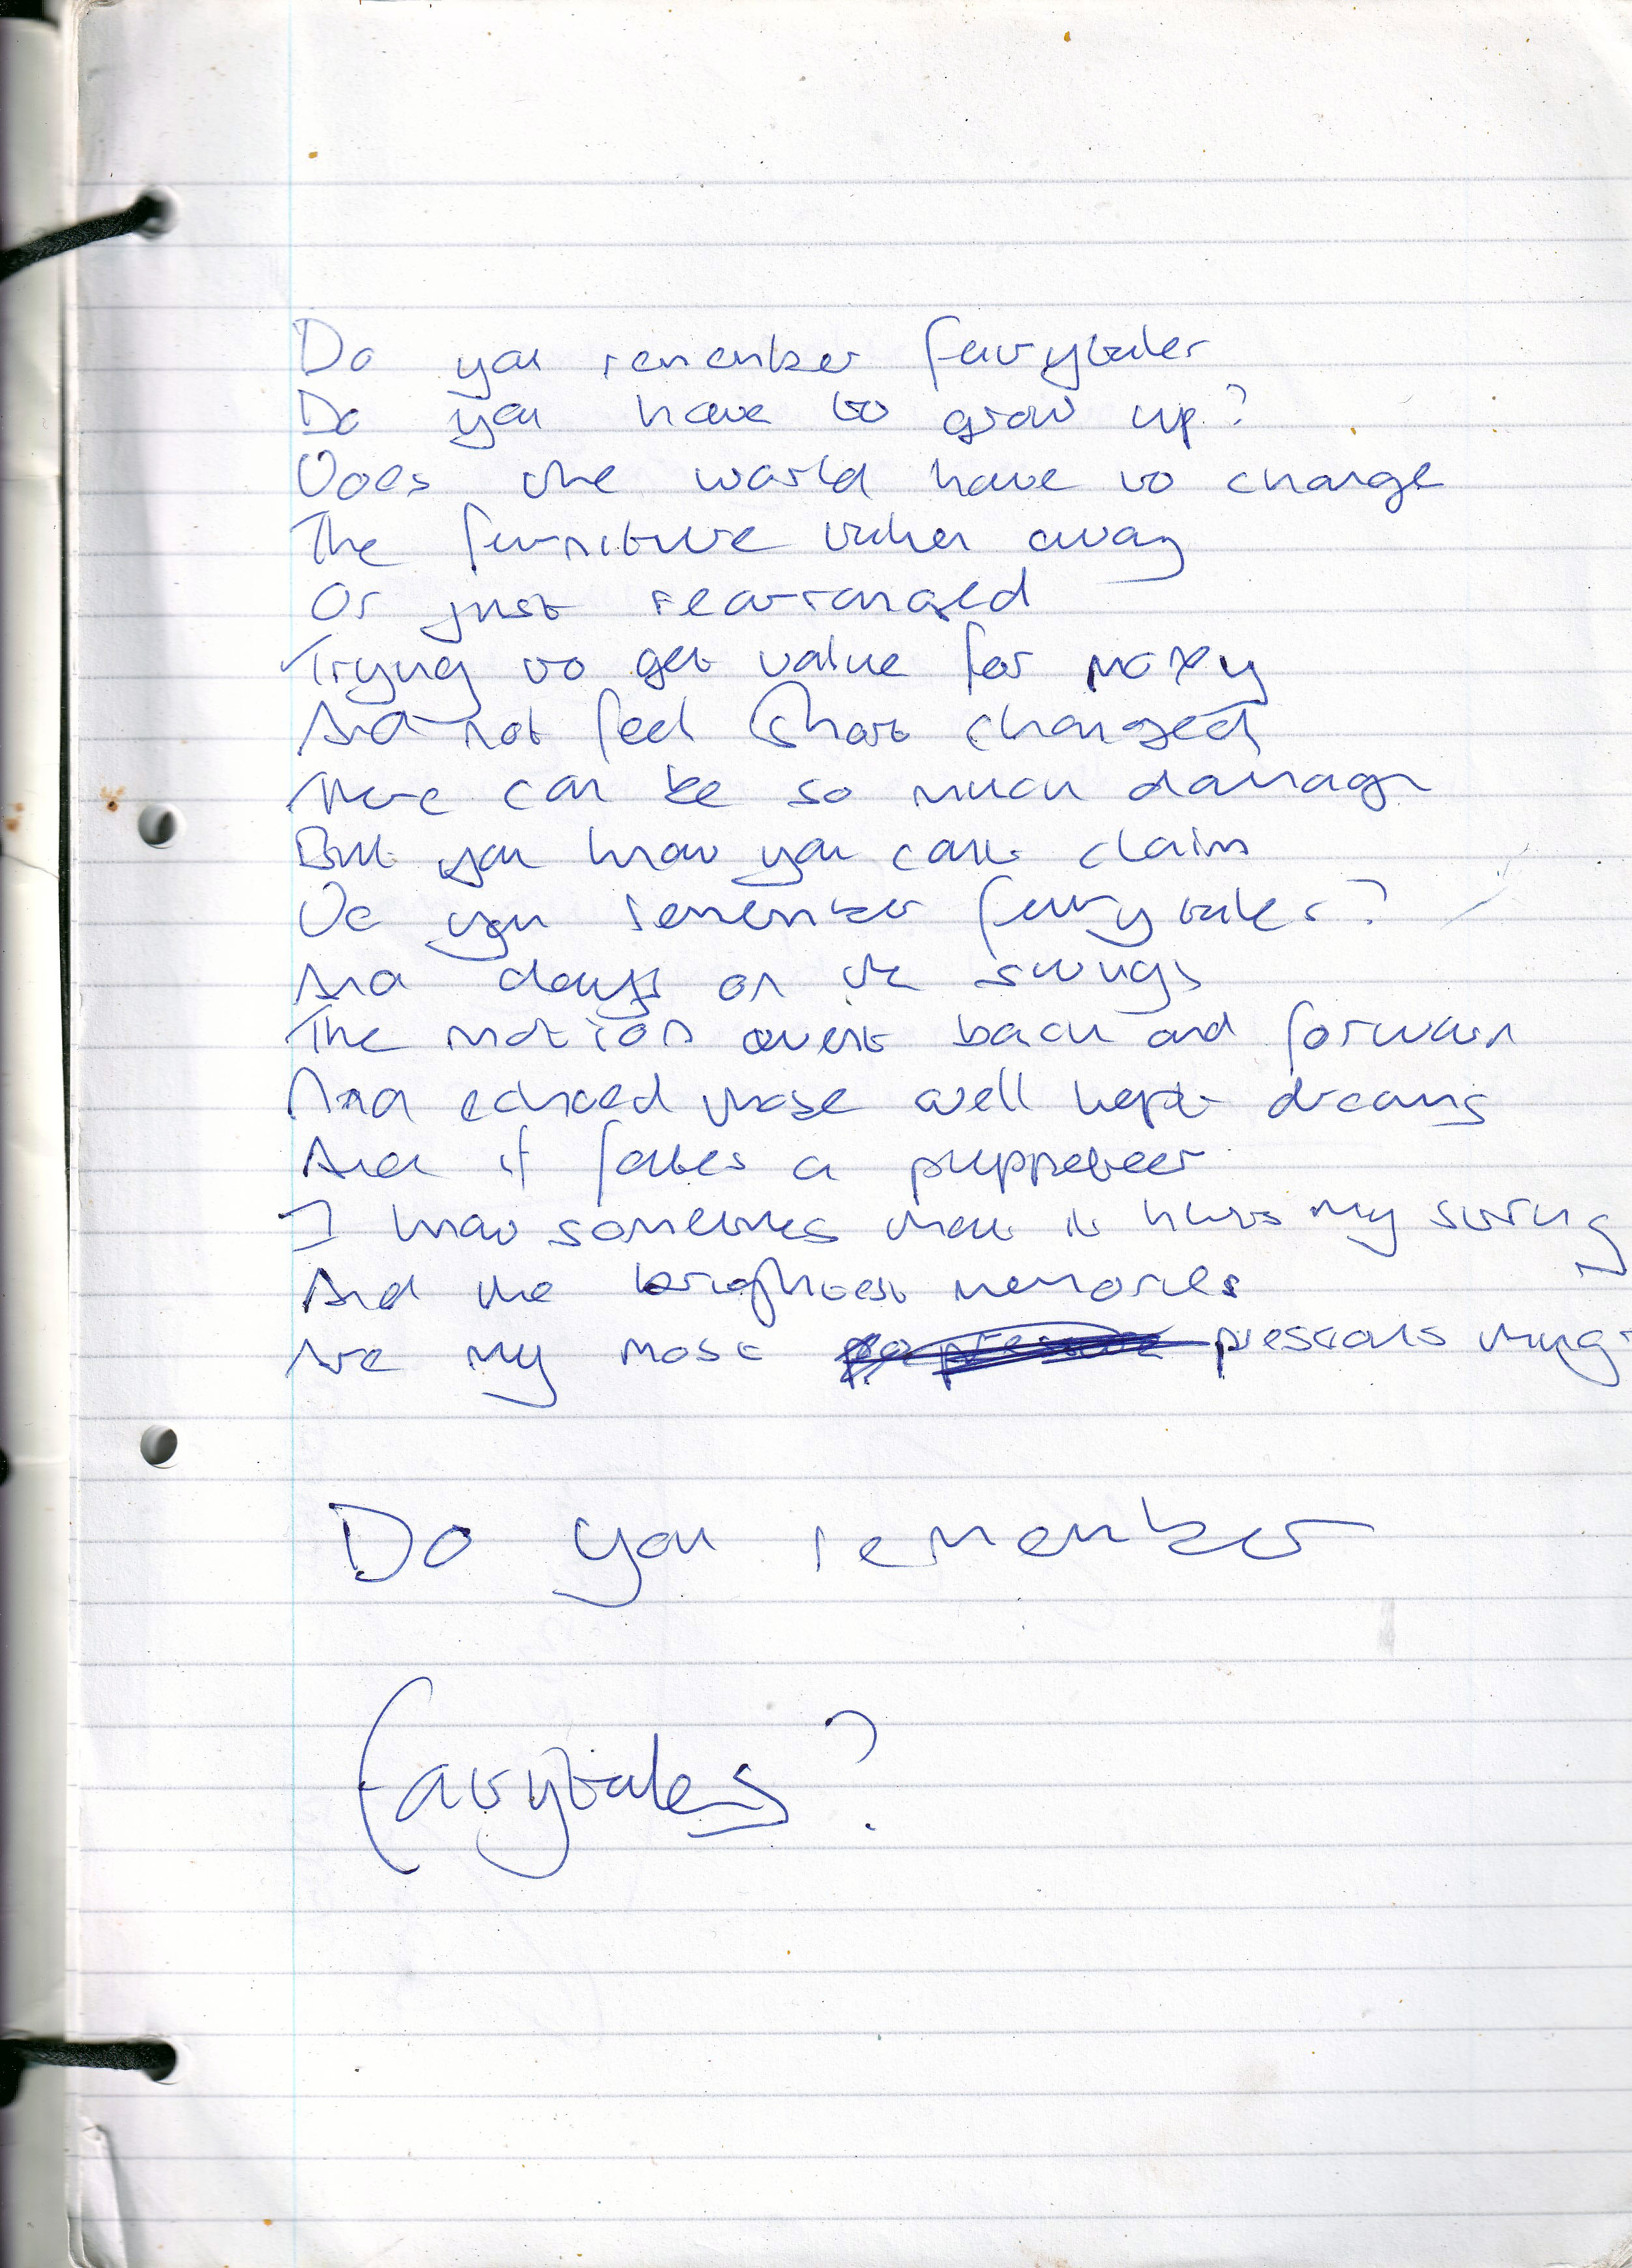 Do you remember fairytales
Do you have to grow up?
Does the world have to change
The furniture taken away
Or just rearranged
Trying to get value for money
And not feel short changed
There can be so much damage
But you know you cant claim
Do you remember fairytales?
And days on the swings
The motion went back and forward
And echoed those well kept dreams
And if fates a puppeteer
I know sometimes that it hurts my string
And the brightest memories
Are my most prescious things
Do you remember
fairytales?